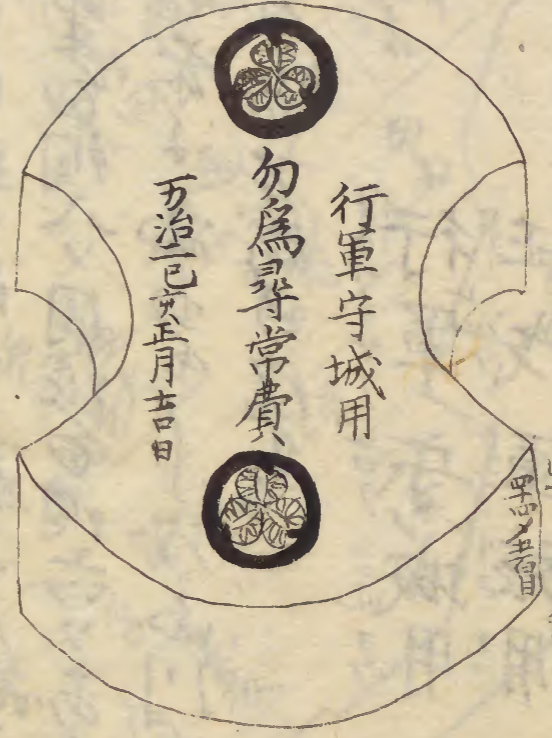 行軍守城用
勿為尋常費
万治二己亥正月吉日